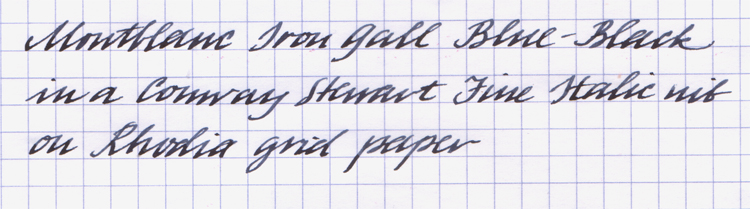 Montblanc Iron Gall Blue-Black
in a Conway Stewart Fine Italic nib
on Rhodia grid paper